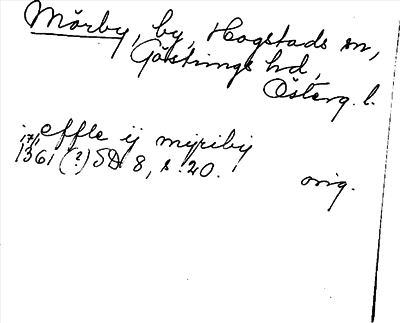 Mörby, by, Hogstads sn,
Göstrings hd,
Österg. l.
effle ij myriby
17/11 1361 (?) SD 8, s. 20.
orig.